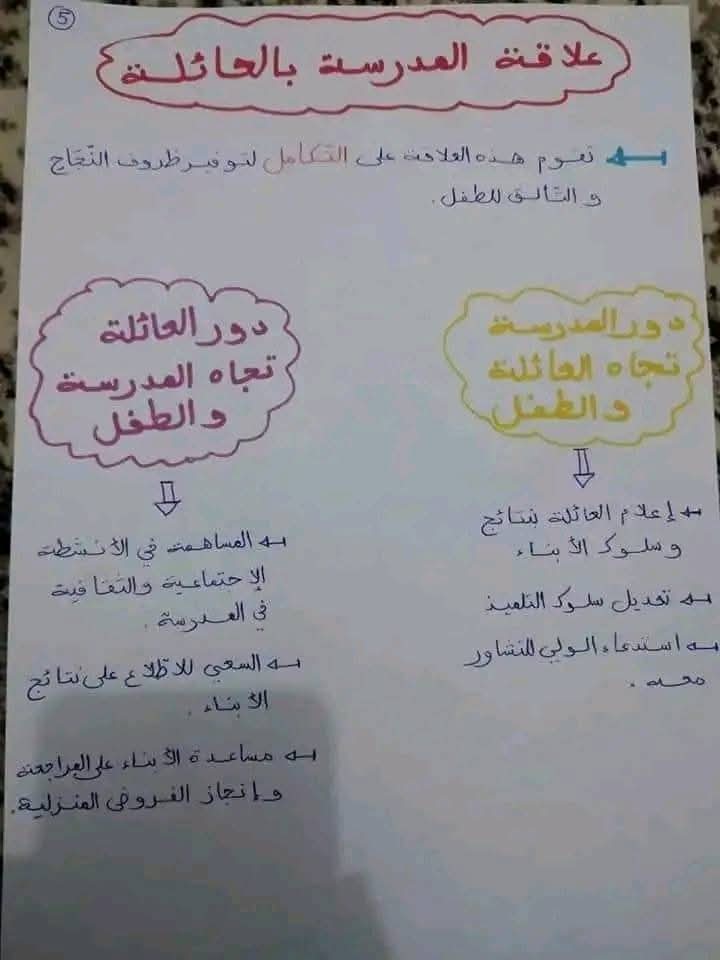 5
علاقة المدرسة بالعائلة
تقوم هذه العلاقة على التكامل لتوفير ظروف النّجاح
و التألق للطفل.
دور المدرسة
تجاه العائلة
والطفل
إعلام العائلة بنتائج
وسلوك الأبناء
تعديل سلوك التلميذ
استدعاء الولي للتشاور
معه.
دور العائلة
تجاه المدرسة
والطفل
المساهمة في الأنشطة
الإجتماعية والثقافية
في المدرسة.
السعي للاطّلاع على نتائج
الأبناء.
مساعدة الأبناء على المراجعة
وإنجاز الفروض المنزلية.